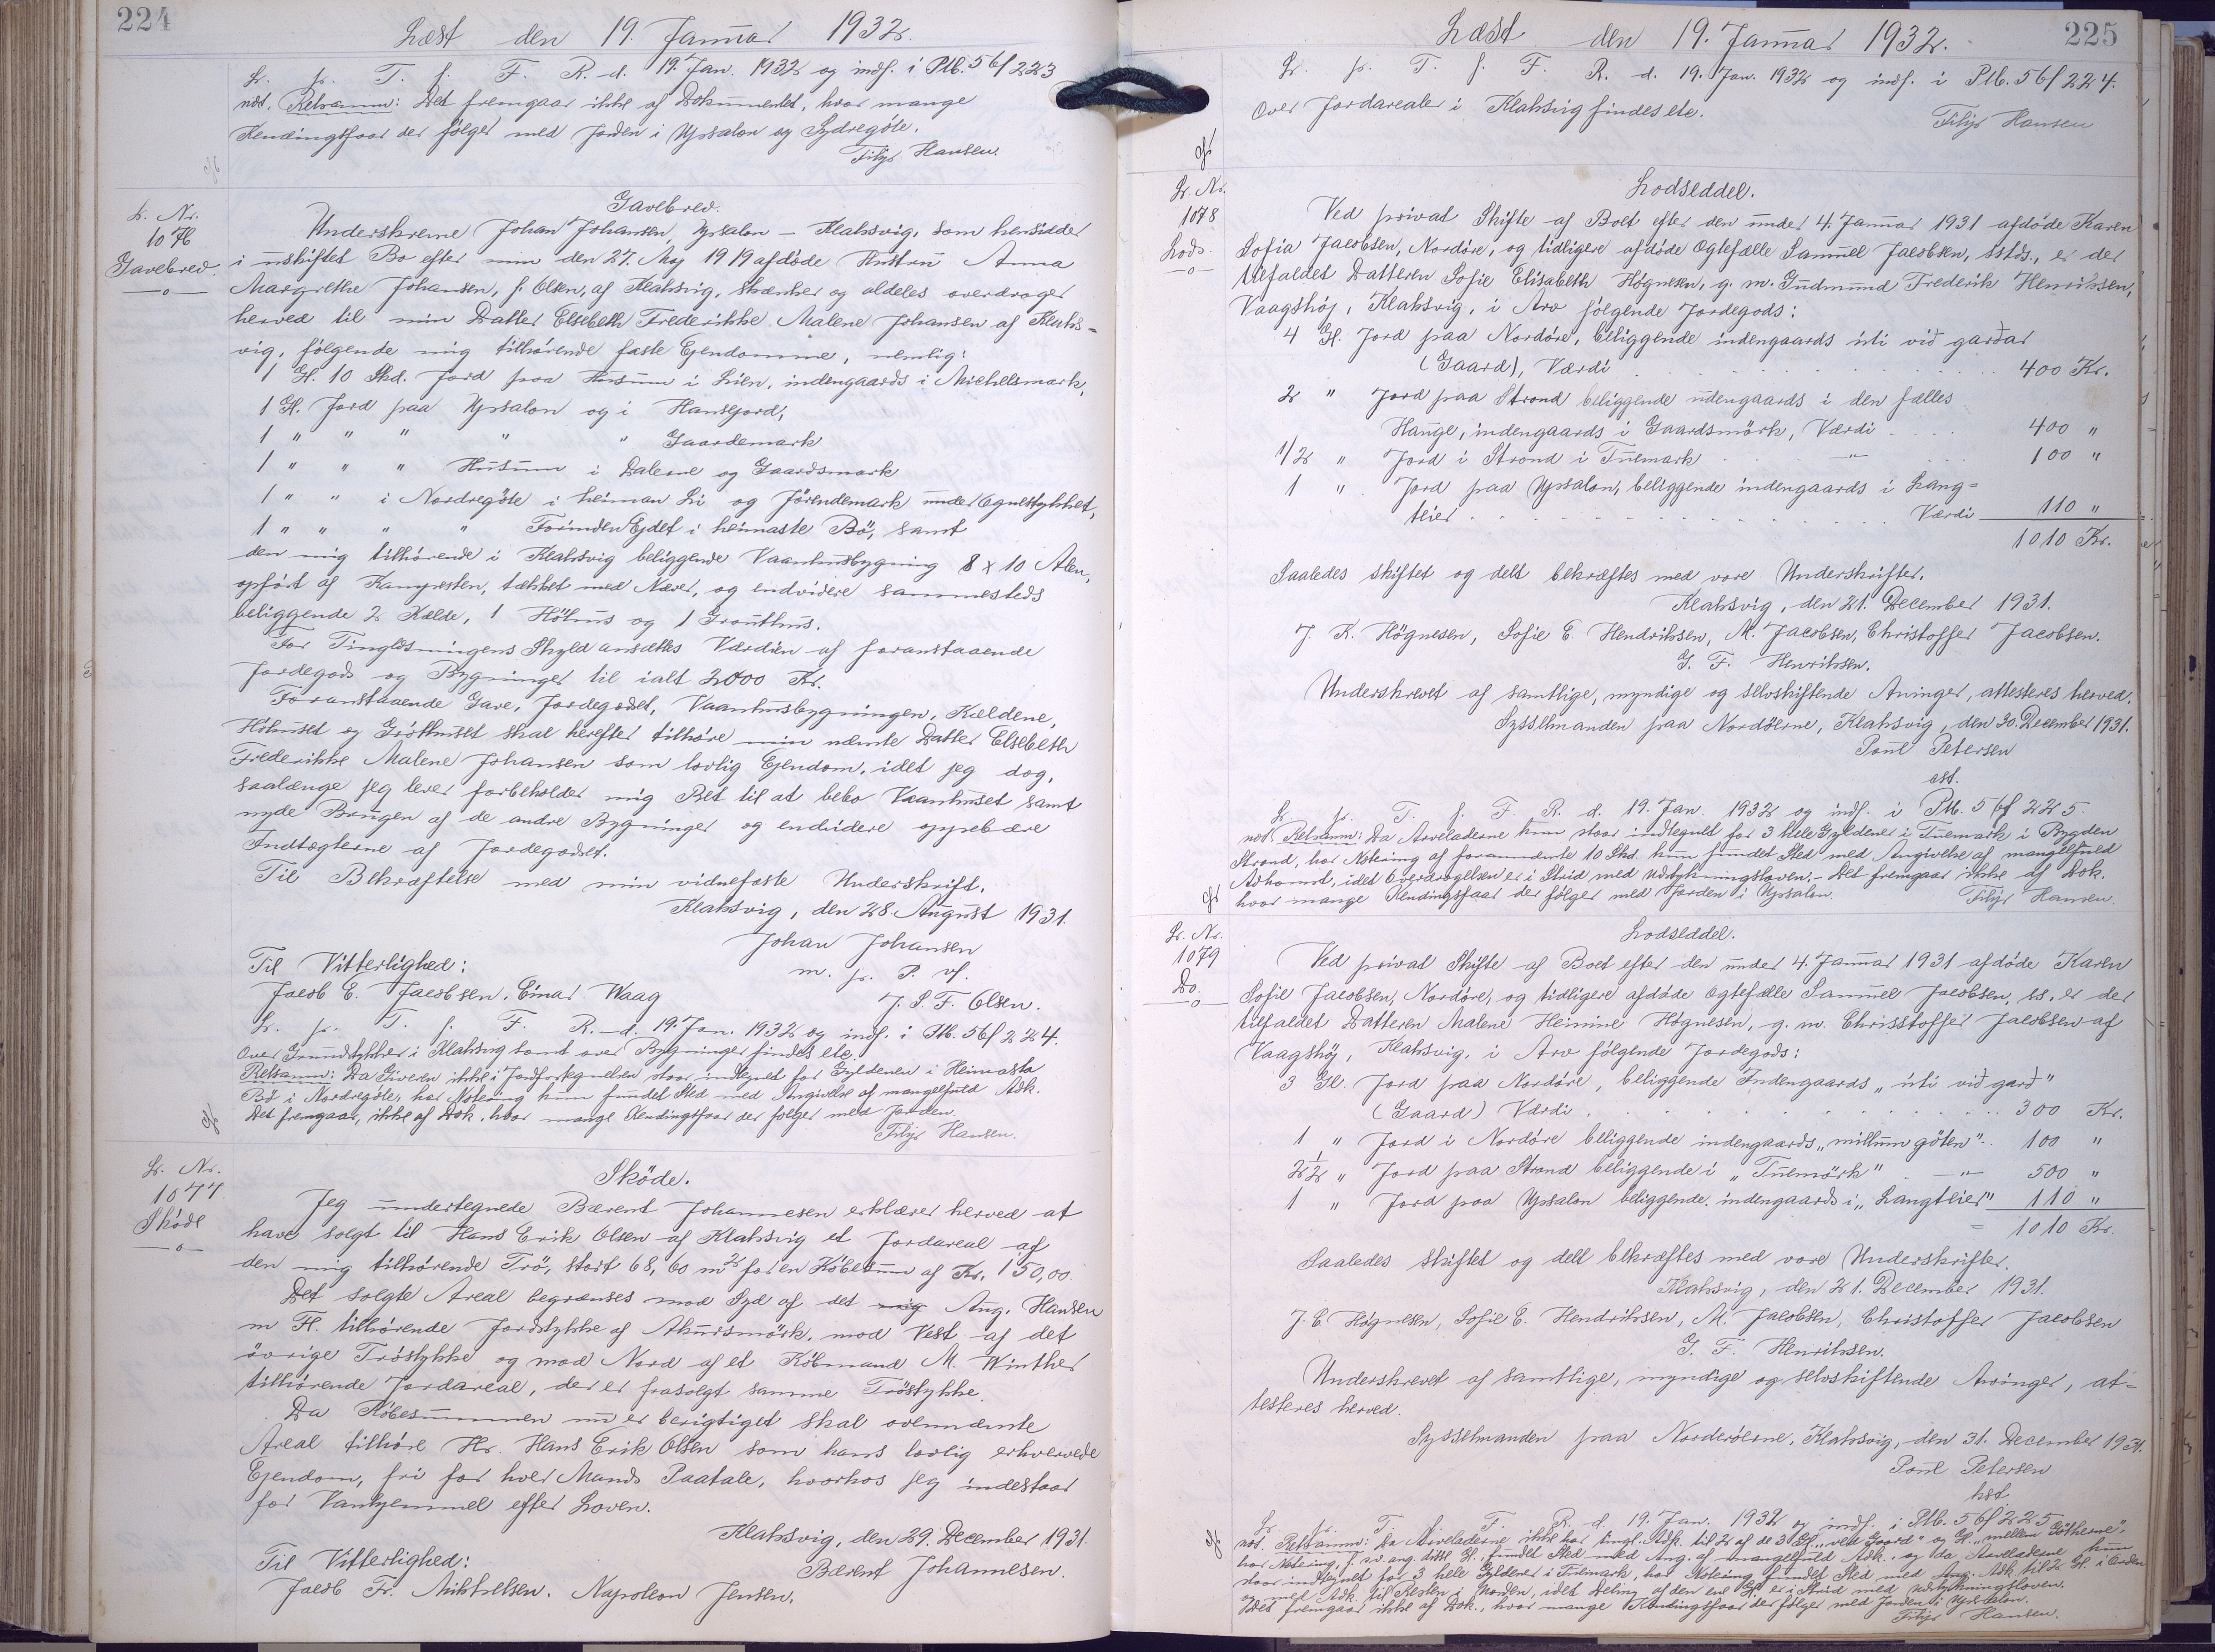 224
Læst den 19. Januar 1932.
Lr. pr. T. f. F. R. d. 19. Jan. 1932 og indf. i Ptb. 56f 223
nst. Retsanm: Det fremgaar ikke af Dokumentet, hvor mange
Kendingsfaar der følger med Jorden i Ypsalon og Sydregöte.
Filip Hansen.
L. Nr.
1076
Gavebrev.
Gavebrev.
Underskrevne Johan Johansen, Ypsalon - Klaksvig, som hensidder
i uskiftet Bo efter min den 27. Maj 1919 afdøde Hustru Anna
Margrethe Johansen, f. Olsen, af Klaksvig, skænker og aldeles overdrager
herved til min Datter Elsebeth Frederikke Malene Johansen af Klaks-
vig, følgende mig tilhørende faste Ejendomme, nemlig:
1 Gl. 10 Skd. Jord paa Husum i Lien, indengaards i Michelsmark,
1 Gl. Jord paa Ypsalon og i Hansejord,
1 " " " " " Gaardemark
1 " " " Husum i Dalerne og Gaardsmark
1 " " i Nordregöte i heiman Li og Jörendemark under Egnestykket,
1 " " " Forinden Ejdet i heimaste Bö, samt
den mig tilhørende i Klaksvig beliggende Vaanhusbygning 8 x 10 Alen,
opført af Kampesten, tækket med Næver, og endvidere sammesteds
beliggende 2 Kælde, 1 Höhus og 1 Grouthus.
For Tinglæsningens Skyld ansættes Værdien af foranstaaende
Jordegods og Bygninger til ialt 2000 Kr.
Foranstaaende Gave, Jordegodset, Vaanhusbygningen, Kældene,
Höhuset og Gróthuset skal herefter tilhøre min nævnte Datter Elsebeth
Frederikke Malene Johansen som lovlig Ejendom, idet jeg dog,
saalænge jeg lever forbeholder mig Ret til at bebo Vaanhuset samt
nyde Brugen af de andre Bygninger og endvidere oppebære
Indtægterne af Jordegodset.
Til Bekræftelse med min vidnefaste Underskrift.
Klaksvig, den 28. August 1931.
Johan Johansen
m. p. P. vf.
J. S. F. Olsen.
Til Vitterlighed:
Jacob E. Jacobsen. Einar Waag
Lr. pr. T. f. F. R. d. 19. Jan. 1932 og indf. i Ptb. 56f 224.
Over Grundstykker i Klaksvig samt over Bygninger findes etc.
Retsanm: Da Giveren ikke i Jordfortegnelsen staar indtegnet for Gyldenen i Heimasta
Bø i Nordregöte, har Notering kun fundet Sted med Angivelse af mangelfuld Adk.
Det fremgaar, ikke af Dok. hvor mange Kendingsfaar der følger med Jorden.
Filip Hansen.
Lr. Nr.
1077
Sköde
Sköde.
Jeg undertegnede Bærent Johannesen erklærer herved at
have solgt til Hans Erik Olsen af Klaksvig et Jordareal af
den mig tilhørende Trö, stort 68,60 m² for en Köbesum af Kr. 150,00.
Det solgte Areal begrænses mod Syd af det mig Aug. Hansen
m Fl. tilhørende Jordstykke af Akursmörk, mod Vest af det
övrige Tröstykke og mod Nord af et Köbmand M. Winther
tilhørende Jordareal, der er frasolgt samme Tröstykke.
Da Köbesummen nu er berigtiget skal ovennævnte
Areal tilhøre Hr. Hans Erik Olsen som hans lovlig erhvervede
Ejendom, fri for hver Mands Paatale, hvorhos jeg indestaar
for Vanhjemmel efter Loven.
Klaksvig, den 29. December 1931.
Bærent Johannesen.
Til Vitterlighed:
Jacob Fr. Mikkelsen. Napoleon Jensen.
225
Læst den 19. Januar 1932.
Lr. pr. T. f. F. R. d. 19. Jan. 1932 og indf. i Ptb. 56f 224.
Over Jordarealer i Klaksvig findes etc.
Filip Hansen
Lr. Nr.
1078
Lods.
Lodseddel.
Ved privat Skifte af Boet efter den under 4. Januar 1931 afdøde Karen
Sofia Jacobsen, Nordöre, og tidligere afdøde Ægtefælle Samuel Jacobsen, sstds., er der
tilfaldet Datteren Sofie Elisabeth Högnesen, g. m. Gudmund Frederik Henriksen,
Vaagshöj, Klaksvig, i Arv følgende Jordegods:
4 Gl. Jord paa Nordöre, beliggende indengaards úti við garðar
(Gaard), Værdi 400 Kr.
2 " Jord paa Strond beliggende udengaards i den fælles
Hauge, indengaards i Gaardsmörk, Værdi 400 "
1/2 " Jord i Strond i Tuemark " 100 "
1 " Jord paa Ypsalon, beliggende indengaards i Lang=
teier Værdi 110 "
1010 Kr.
Saaledes skiftet og delt bekræftes med vore Underskrifter.
Klaksvig, den 21. December 1931.
J. K. Högnesen, Sofie E. Hendriksen, M. Jacobsen, Christoffer Jacobsen.
G. F. Henriksen.
Underskrevet af samtlige, myndige og selvskiftende Arvinger, attesteres herved.
Sysselmanden paa Nordöerne, Klaksvig, den 30. December 1931.
Poul Petersen
cst.
Lr. pr. T. f. F. R. d. 19. Jan. 1932 og indf. i Ptb. 56f 225.
nst. Retsanm: Da Arveladerne kun staar indtegnet for 3 hele Gyldener i Tuemark i Bygden
Strond, har Notering af forannævnte 10 Skd. kun fundet Sted med Angivelse af mangelfuld
Adkomst, idet Overdragelsen er i Strid med Udstykningsloven. - Det fremgaar ikke af Dok.
hvor mange Kendingsfaar der følger med Jorden i Ypsalon.
Filip Hansen.
Lr. Nr.
1079
Do.
Lodseddel.
Ved privat Skifte af Boet efter den under 4. Januar 1931 afdøde Karen
Sofie Jacobsen, Nordöre, og tidligere afdøde Ægtefælle Samuel Jacobsen, ss. er der
tilfaldet Datteren Malene Heinine Högnesen, g. m. Chrisstoffer Jacobsen af
Vaagshöj, Klaksvig, i Arv følgende Jordegods:
3 Gl. Jord paa Nordöre, beliggende Indengaards „úti við garð"
(Gaard) Værdi 300 Kr.
1 " Jord i Nordöre beliggende indengaards „millum göten" 100 "
2 1/2 " Jord paa Strond beliggende i „Tuemörk" " 500 "
1 " Jord paa Ypsalon beliggende indengaards i „Langteier" 110 "
1010 Kr.
Saaledes skiftet og delt bekræftes med vore Underskrifter.
Klaksvig, den 21. December 1931.
J. E. Högnesen, Sofie E. Hendriksen, M. Jacobsen, Christoffer Jacobsen
G. F. Henriksen.
Underskrevet af samtlige, myndige og selvskiftende Arvinger, at=
testeres herved.
Sysselmanden paa Norderöerne, Klaksvig, den 31. December 1931.
Poul Petersen
kst.
Lr. pr. T. f. F. R. d. 19. Jan. 1932 og indf. i Ptb. 56f 225
nst. Retsanm: Da Arveladerne ikke har tingl. Adk. til 2 af de 3 Gl. „ved Gaard" og Gl. „mellem Götherne",
har Notering, f. s. v. ang. disse Gl., fundet Sted med Ang. af mangelfuld Adk., og da Arveladerne kun
staar indtegnet for 3 hele Gyldener i Tuemark, har Notering fundet Sted med Ang. Adk til 2 Gl. i Orden
og med Adk. til Resten i Norden, idet Deling af den ene Gl. er i Strid med Udstykningsloven.
Det fremgaar ikke af Dok., hvor mange Kendingsfaar der følger med Jorden i Ypsalon.
Filip Hansen.